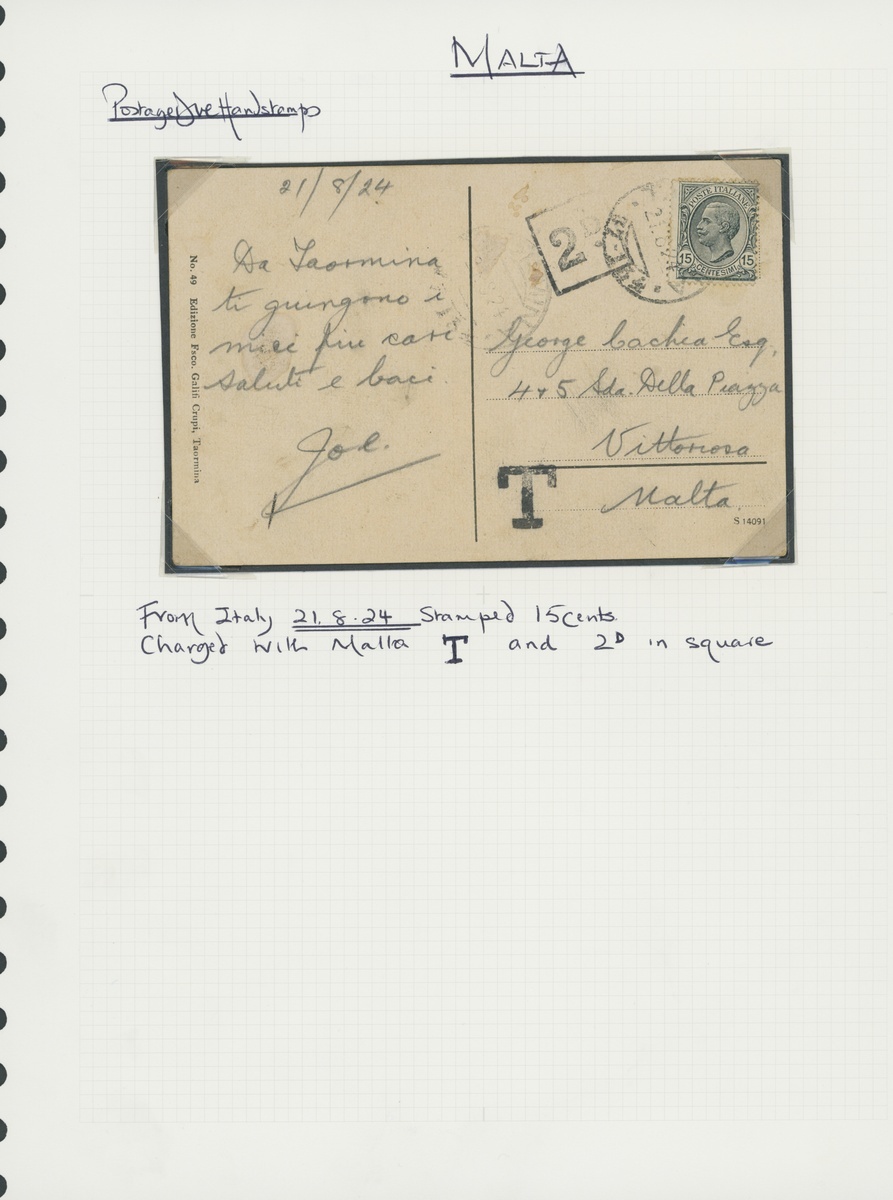 MALTA
Postage Due Handstamps
21/8/24
Da Taormina
ti giungono i
miei piu cari
saluti e baci
Joe.
No. 49 Edizione Fsco. Galifi Crupi, Taormina
2D
POSTE ITALIANE
15 15
CENTESIMI
George Cachia Esq,
4 & 5 Sda. Della Piazza
Vittoriosa
T
Malta.
S 14091
From Italy 21.8.24 Stamped 15 cents.
Charged with Malta T and 2D in square